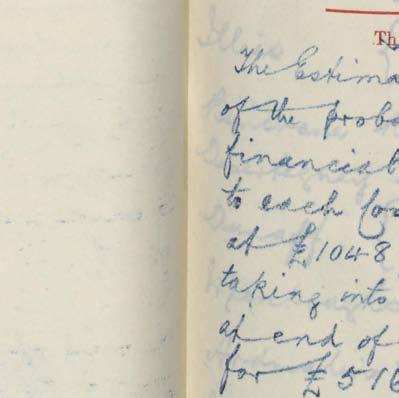 Th
The Estima
of the proba
financial
to each Cou
at £1048
taking into
at end of
for £516